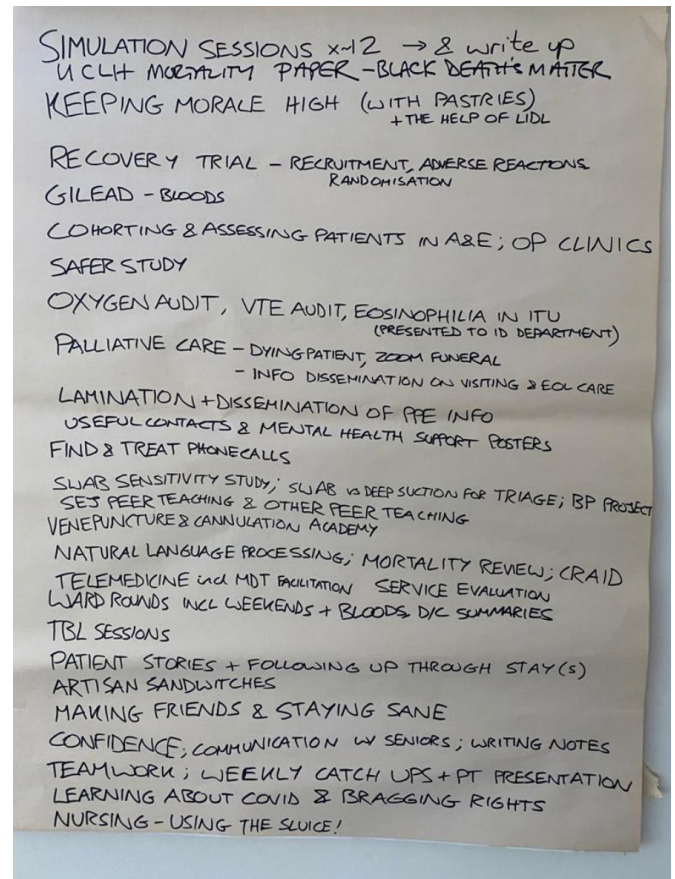 SIMULATION SESSIONS x~12 → & write up
UCLH MORTALITY PAPER - BLACK DEATH'S MATTER
KEEPING MORALE HIGH (WITH PASTRIES)
+ THE HELP OF LIDL
RECOVERY TRIAL - RECRUITMENT, ADVERSE REACTIONS
RANDOMISATION
GILEAD - BLOODS
COHORTING & ASSESSING PATIENTS IN A&E; OP CLINICS
SAFER STUDY
OXYGEN AUDIT, VTE AUDIT, EOSINOPHILIA IN ITU
(PRESENTED TO ID DEPARTMENT)
PALLIATIVE CARE - DYING PATIENT, ZOOM FUNERAL
- INFO DISSEMINATION ON VISITING & EOL CARE
LAMINATION + DISSEMINATION OF PPE INFO
USEFUL CONTACTS & MENTAL HEALTH SUPPORT POSTERS
FIND & TREAT PHONECALLS
SWAB SENSITIVITY STUDY; SWAB vs DEEP SUCTION FOR TRIAGE; BP PROJECT
SEJ PEER TEACHING & OTHER PEER TEACHING
VENEPUNCTURE & CANNULATION ACADEMY
NATURAL LANGUAGE PROCESSING; MORTALITY REVIEW; CRAID
TELEMEDICINE incl MDT FACILITATION SERVICE EVALUATION
WARD ROUNDS INCL WEEKENDS + BLOODS, D/C SUMMARIES
TBL SESSIONS
PATIENT STORIES + FOLLOWING UP THROUGH STAY(S)
ARTISAN SANDWITCHES
MAKING FRIENDS & STAYING SANE
CONFIDENCE; COMMUNICATION W/ SENIORS; WRITING NOTES
TEAMWORK; WEEKLY CATCH UPS + PT PRESENTATION
LEARNING ABOUT COVID & BRAGGING RIGHTS
NURSING - USING THE SLUICE!